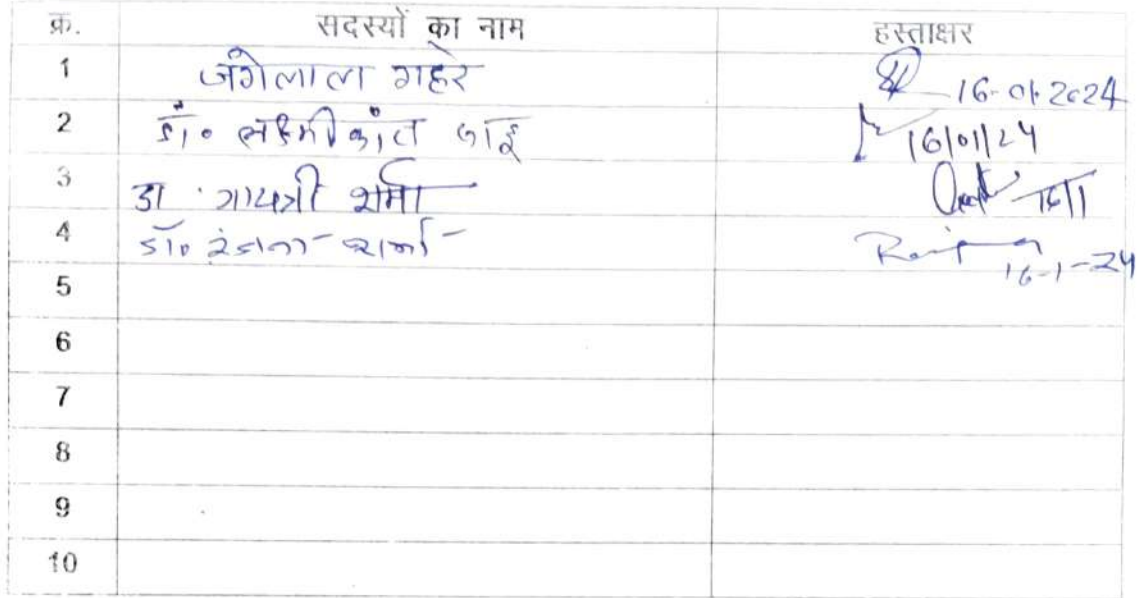 क्र. सदस्यों का नाम हस्ताक्षर
1 जंगेलाल गहरे 16-01-2024
2 डॉ. लक्ष्मीकांत 16/01/24
3 डा गायत्री शर्मा 16/1
4 डॉ. रंजना शर्मा 16-1-24
5
6
7
8
9
10